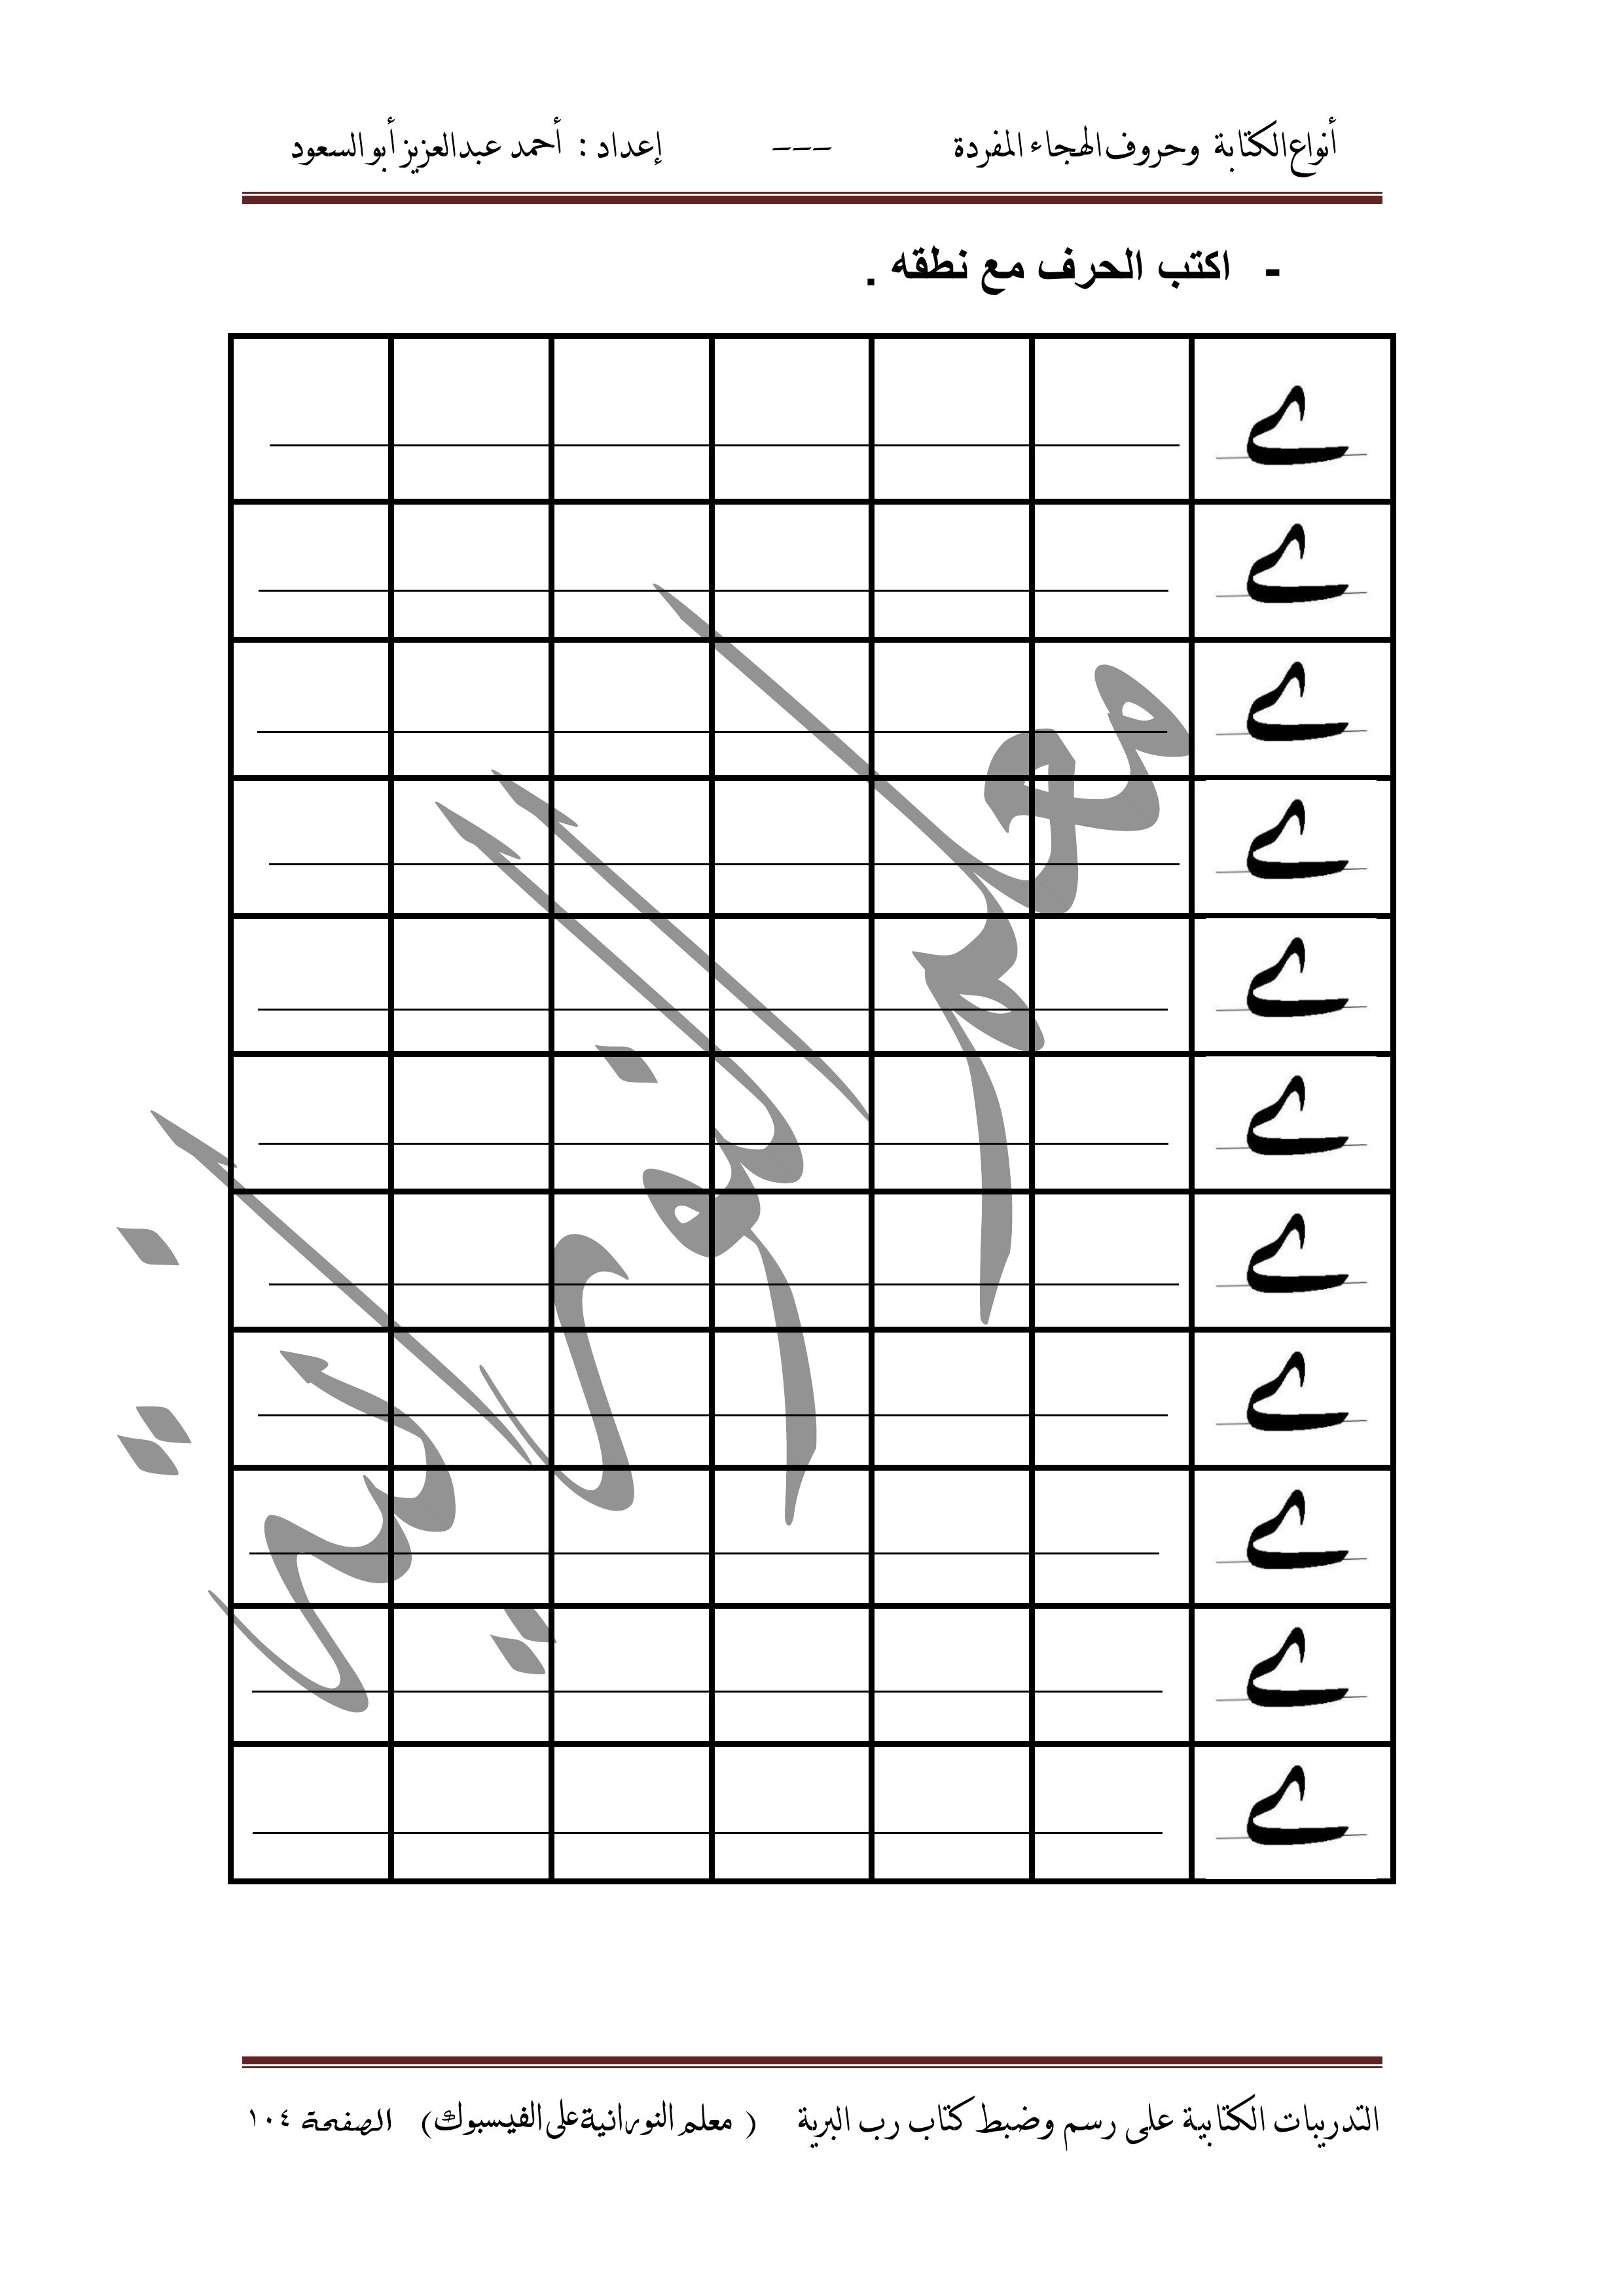 أنواع الكتابة وحروف الهجاء المفردة --- إعداد : أحمد عبدالعزيز أبو السعود
- اكتب الحرف مع نطقه .
ے
ے
ے
ے
ے
ے
ے
ے
ے
ے
ے
معلم النورانية
التدريبات الكتابية على رسم وضبط كتاب رب البرية ( معلم النورانية على الفيسبوك) الصفحة ١٠٤